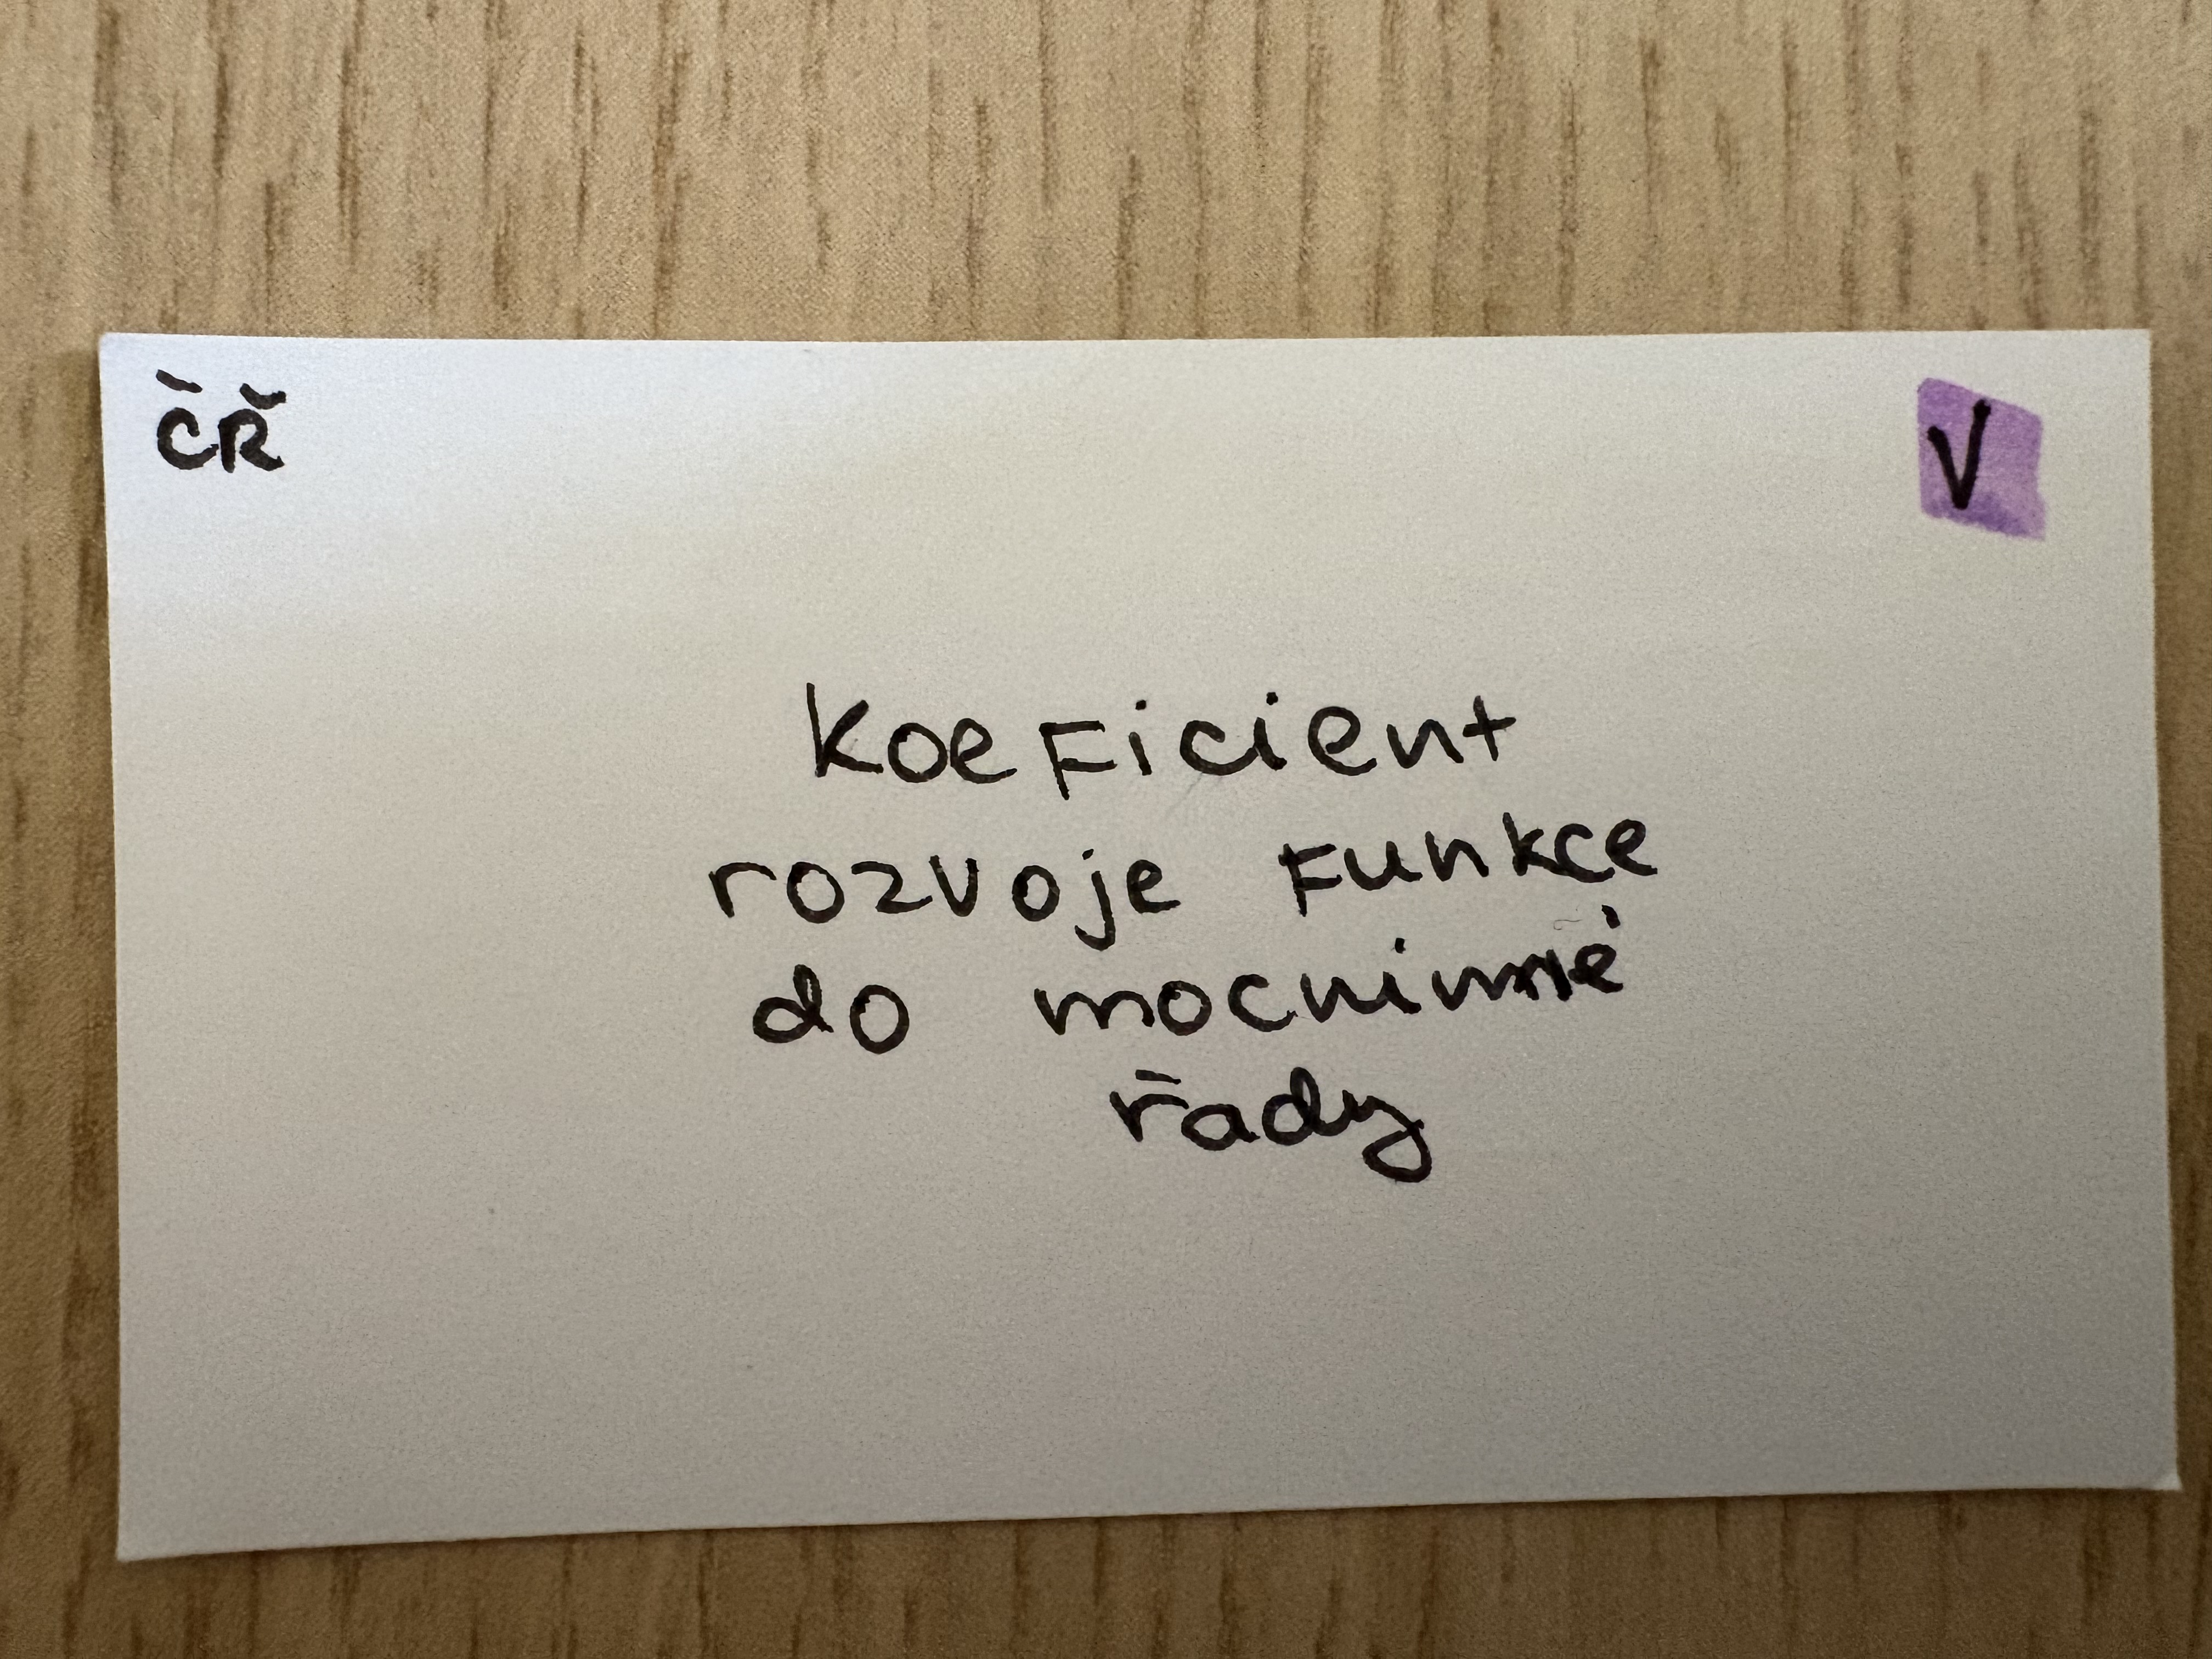 ČŘ
V
Koeficient
rozvoje funkce
do mocninné
řady